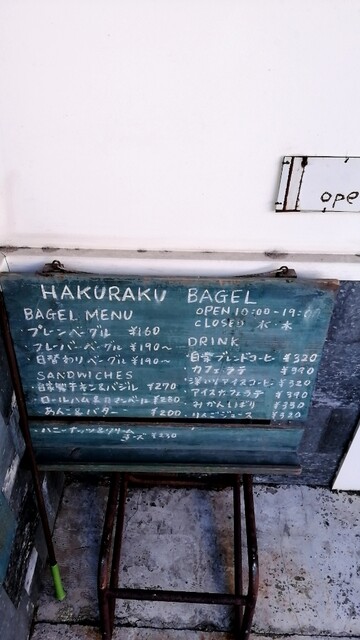 ope
HAKURAKU BAGEL
BAGEL MENU
・プレーンベーグル ¥160
・フレーバーベーグル ¥190〜
・日替わりベーグル ¥190〜
SANDWICHES
・自家製チキン&バジル ¥270
・ロールハム&ロメインベール ¥280
・あん&バター ¥200
・ハニーナッツ&クリーム
チーズ ¥230
OPEN 10:00-19:00
CLOSED 水・木
DRINK
・自家ブレンドコーヒー ¥320
・カフェラテ ¥390
・アイスコーヒー ¥320
・アイスカフェラテ ¥390
・みかんしぼり ¥350
・りんごジュース ¥320